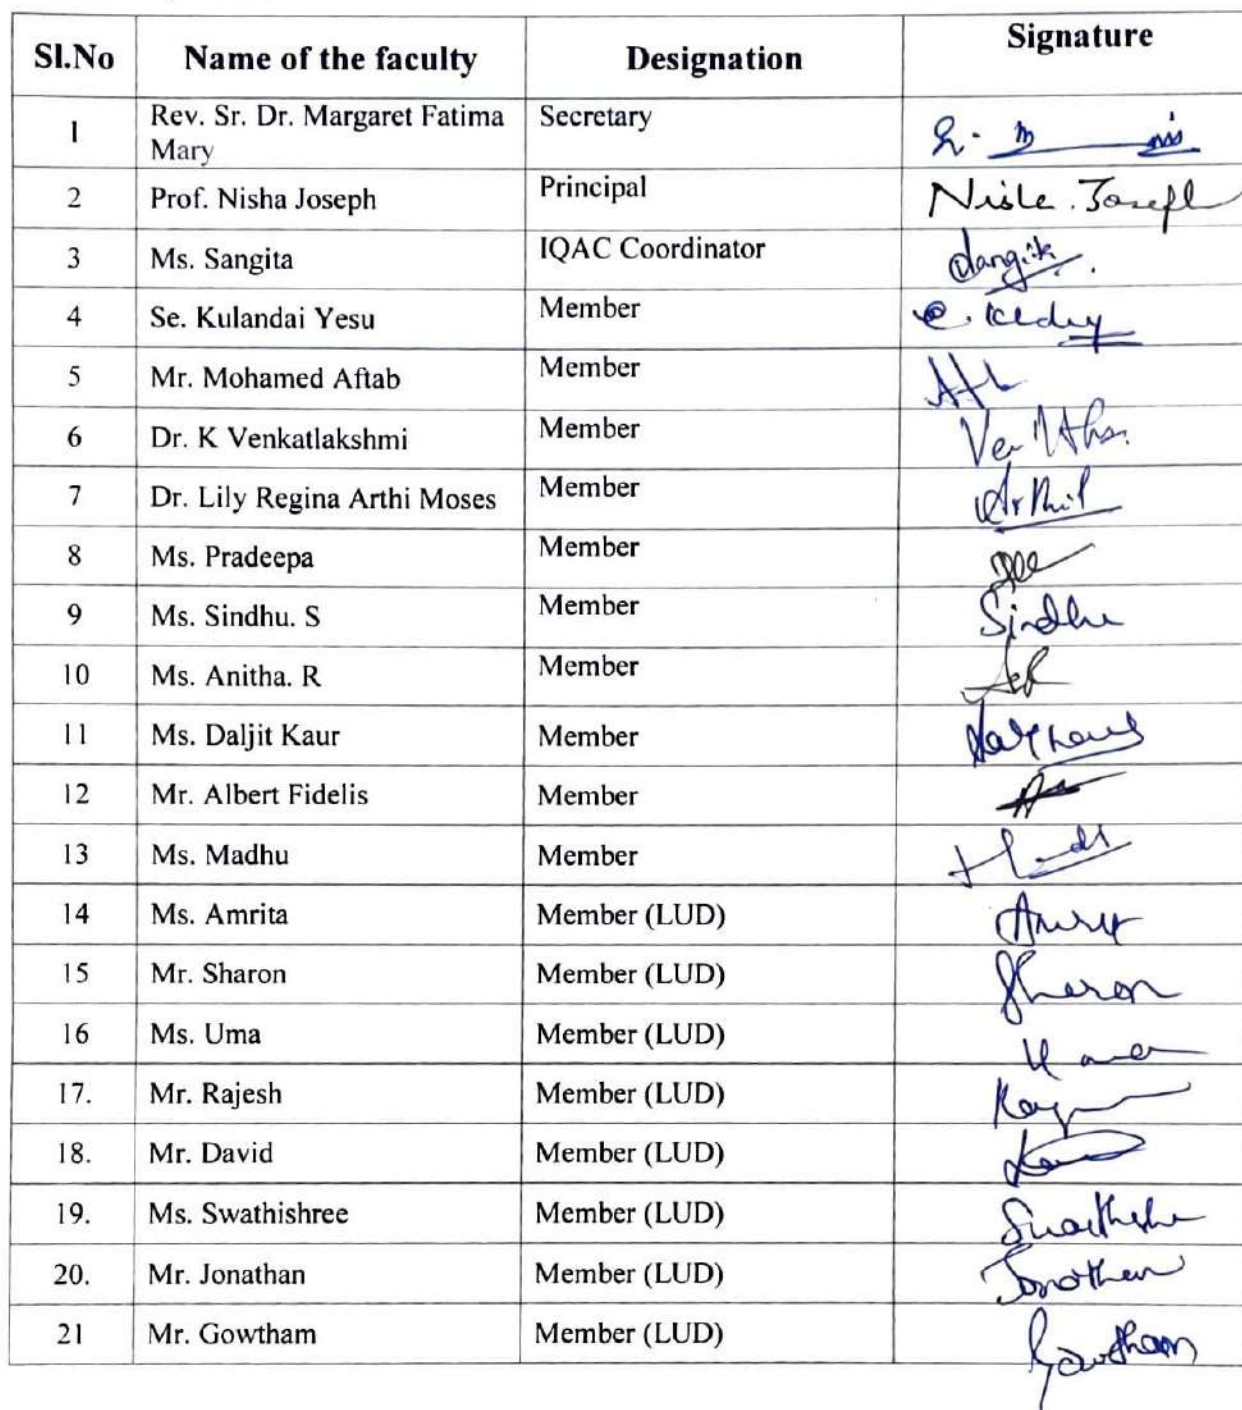 Sl.No Name of the faculty Designation Signature
1 Rev. Sr. Dr. Margaret Fatima Secretary
Mary
2 Prof. Nisha Joseph Principal Nisha Joseph
3 Ms. Sangita IQAC Coordinator Sangita
4 Se. Kulandai Yesu Member
5 Mr. Mohamed Aftab Member
6 Dr. K Venkatlakshmi Member
7 Dr. Lily Regina Arthi Moses Member
8 Ms. Pradeepa Member
9 Ms. Sindhu. S Member Sindhu
10 Ms. Anitha. R Member
11 Ms. Daljit Kaur Member
12 Mr. Albert Fidelis Member
13 Ms. Madhu Member
14 Ms. Amrita Member (LUD)
15 Mr. Sharon Member (LUD) Sharon
16 Ms. Uma Member (LUD) Uma
17. Mr. Rajesh Member (LUD)
18. Mr. David Member (LUD)
19. Ms. Swathishree Member (LUD)
20. Mr. Jonathan Member (LUD) Jonathan
21 Mr. Gowtham Member (LUD) Gowtham